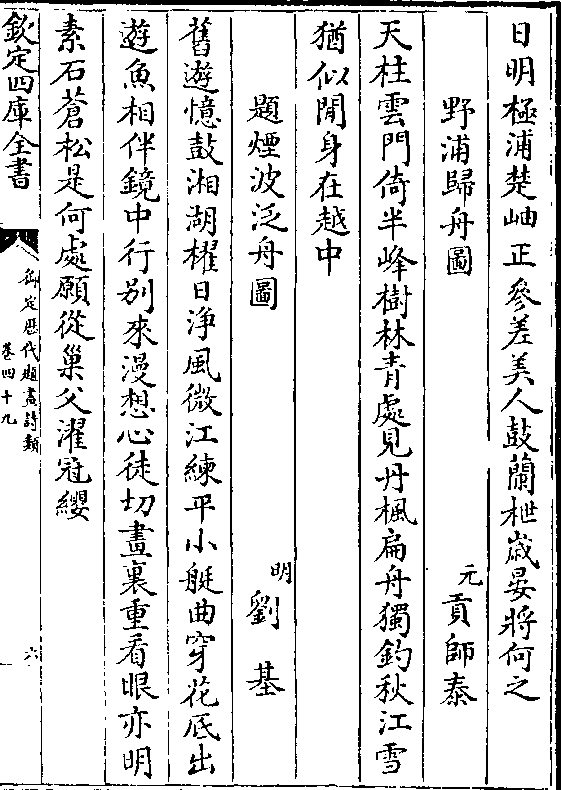 日明極浦楚岫正參差美人鼓蘭枻歳晏將何之
野浦歸舟圖　元貢師泰
天柱雲門倚半峰樹林青處見丹楓扁舟獨釣秋江雪
猶似閒身在越中
題煙波泛舟圖　明劉基
舊遊憶鼓湘湖櫂日浄風微江練平小艇曲穿花底出
遊魚相伴鏡中行别來漫想心徒切畫裏重看眼亦明
素石蒼松是何處願從巢父濯冠纓
欽定四庫全書
御定歴代題畫詩類
卷四十九
六